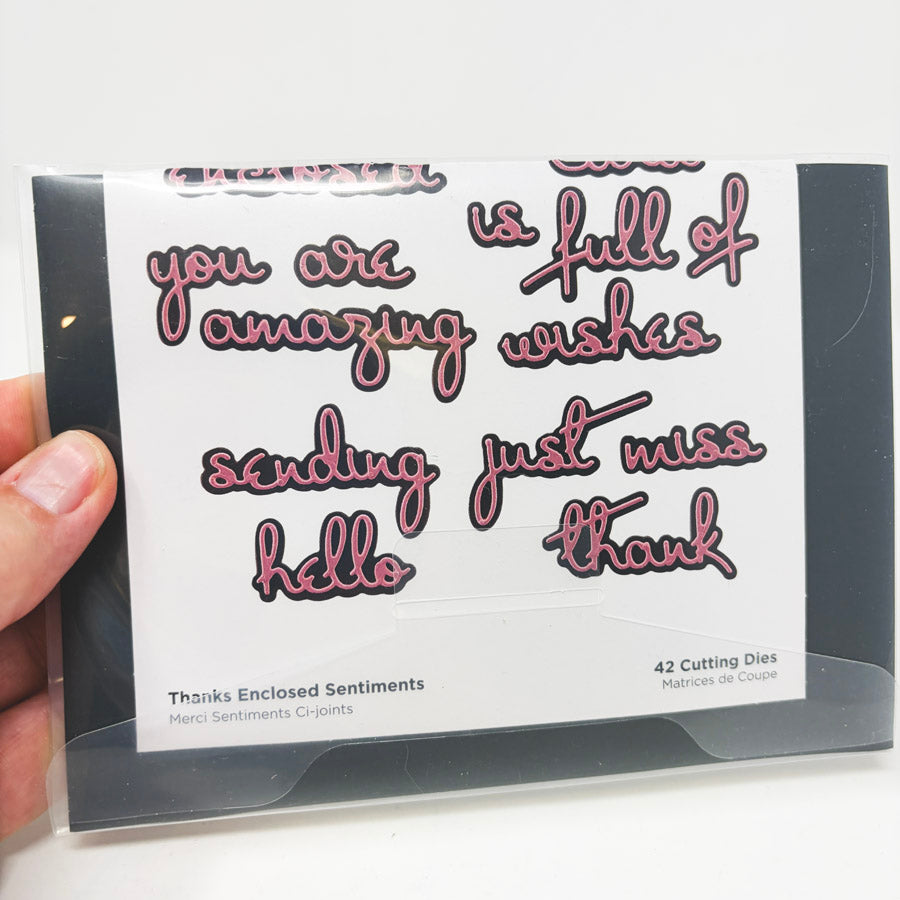 enclosed
you are
amazing
sending
hello
is full of
wishes
just miss
thank
Thanks Enclosed Sentiments
Merci Sentiments Ci-joints
42 Cutting Dies
Matrices de Coupe